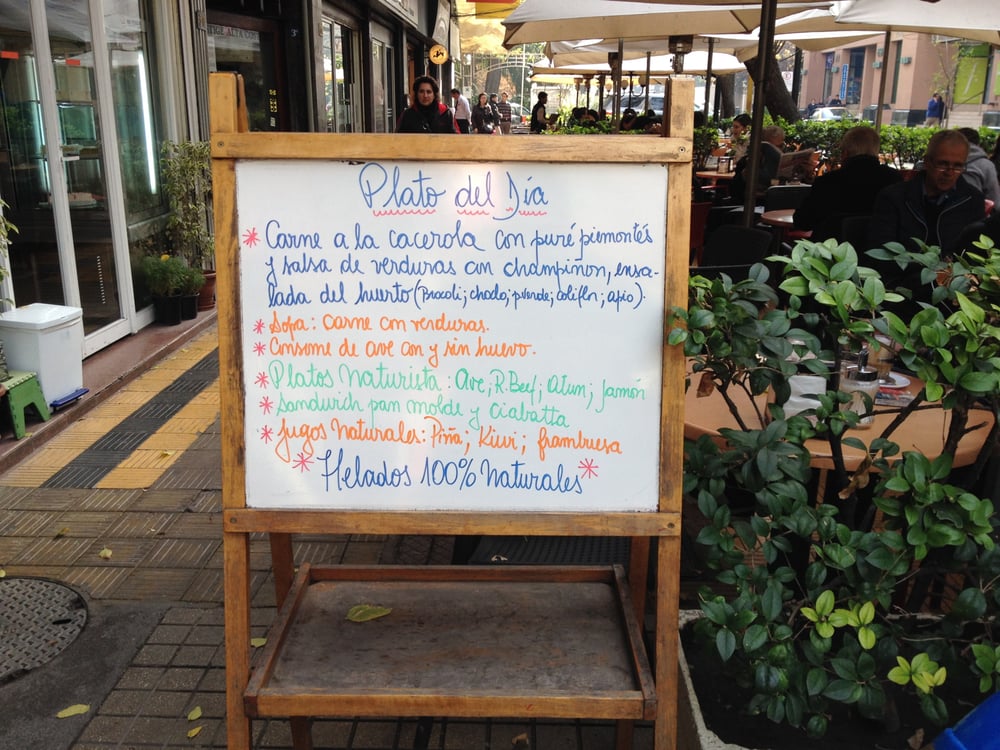 Plato del Día
* Carne a la cacerola con puré piemontés
y salsa de verduras con champiñon, ensa-
lada del huerto (Brocoli; choclo; p.verde; coliflor; apio).
* Sopa: carne con verduras.
* Consome de ave con y sin huevo.
* Platos Naturista: Ave; R.Beef; atun; Jamón
* Sandwich pan molde y Ciabatta
* Jugos Naturales: Piña; Kiwi; frambuesa
* Helados 100% Naturales *